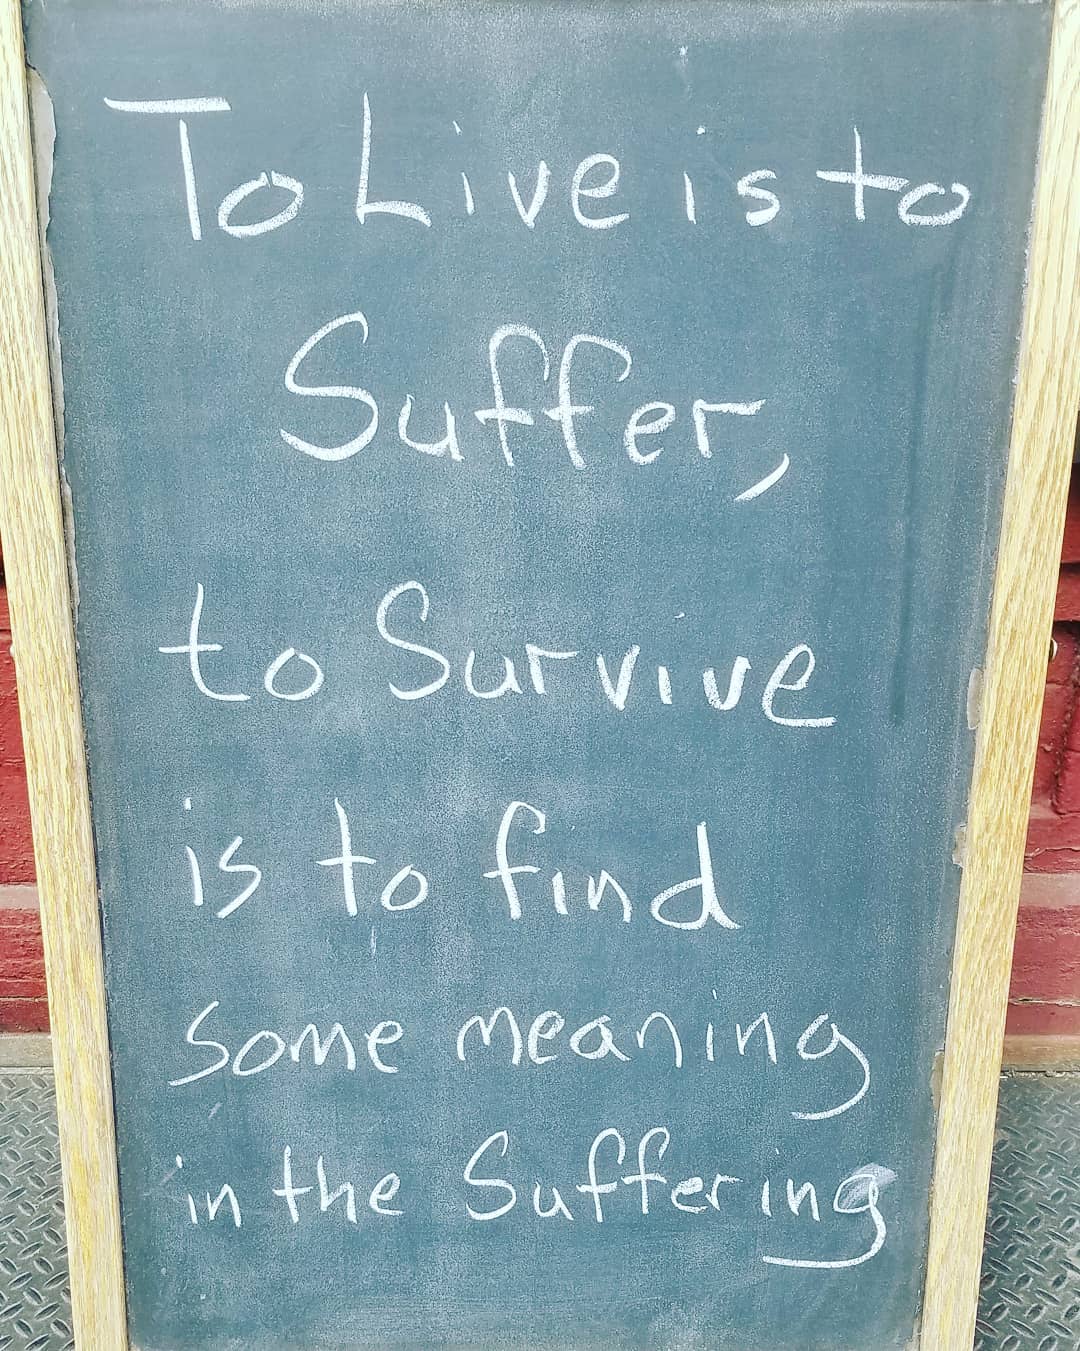 To Live is to
Suffer,
to Survive
is to find
some meaning
in the Suffering